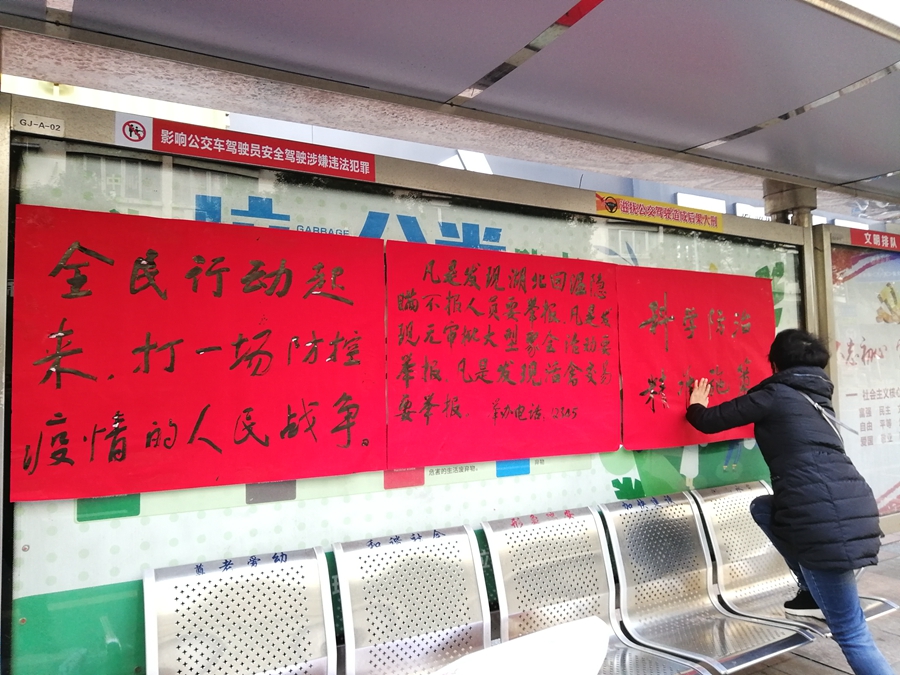 GJ-A-02
影响公交车驾驶员安全驾驶涉嫌违法犯罪
GARBAGE
文明排队
全民行动起
来.打一场防控
疫情的人民战争。
凡是发现湖北回温隐
瞒不报人员要举报.凡是发
现无审批大型聚会活动要
举报.凡是发现活禽交易
要举报. 举办电话:2345
科学防治
社会主义核心
富强 民主
自由 平等
爱国
尊老爱幼
和谐社会